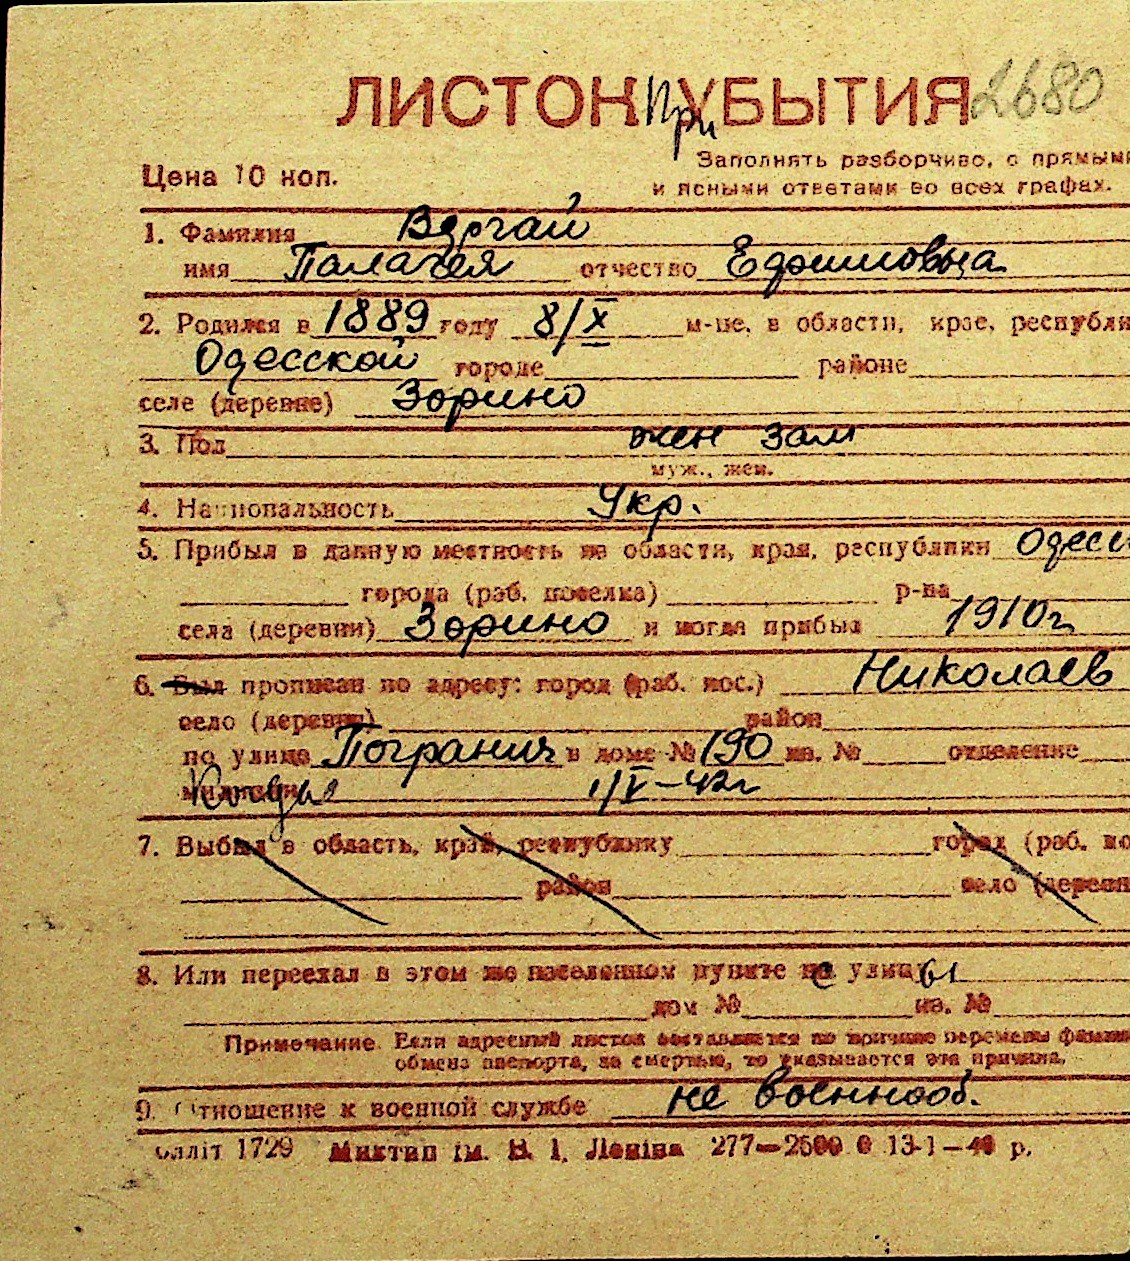 ЛИСТОК При УБЫТИЯ 2680
Цена 10 коп.
Заполнять разборчиво, с прямыми
и ясными ответами во всех графах.
1. Фамилия
имя Палагея отчество Ефимовна
2. Родился в 1889 году 8/X м-це, в области, крае, республи
Одесской городе районе
селе (деревне) Зорино
3. Пол жен зам
муж., жен.
4. Национальность Укр.
5. Прибыл в данную местность из области, края, республики Одесс
города (раб. поселка) р-на
села (деревни) Зорино и когда прибыл 1910г
6. Был прописан по адресу: город (раб. пос.) Николаев
село (деревня) район
по улице Погранич в доме № 190 кв. № отделение
милиции Когда 1/V-42г
7. Выбыл в область, край, республику город (раб. по
район село (деревн
8. Или переехал в этом же населенном пункте с улицы
дом № кв. №
Примечание. Если адресный листок составляется по причине перемены фамили
обмена паспорта, за смертью, то указывается эта причина.
9. Отношение к военной службе не военнооб.
блліт 1729 Миктип ім. В. І. Леніна 277—2500 13-1—40 р.